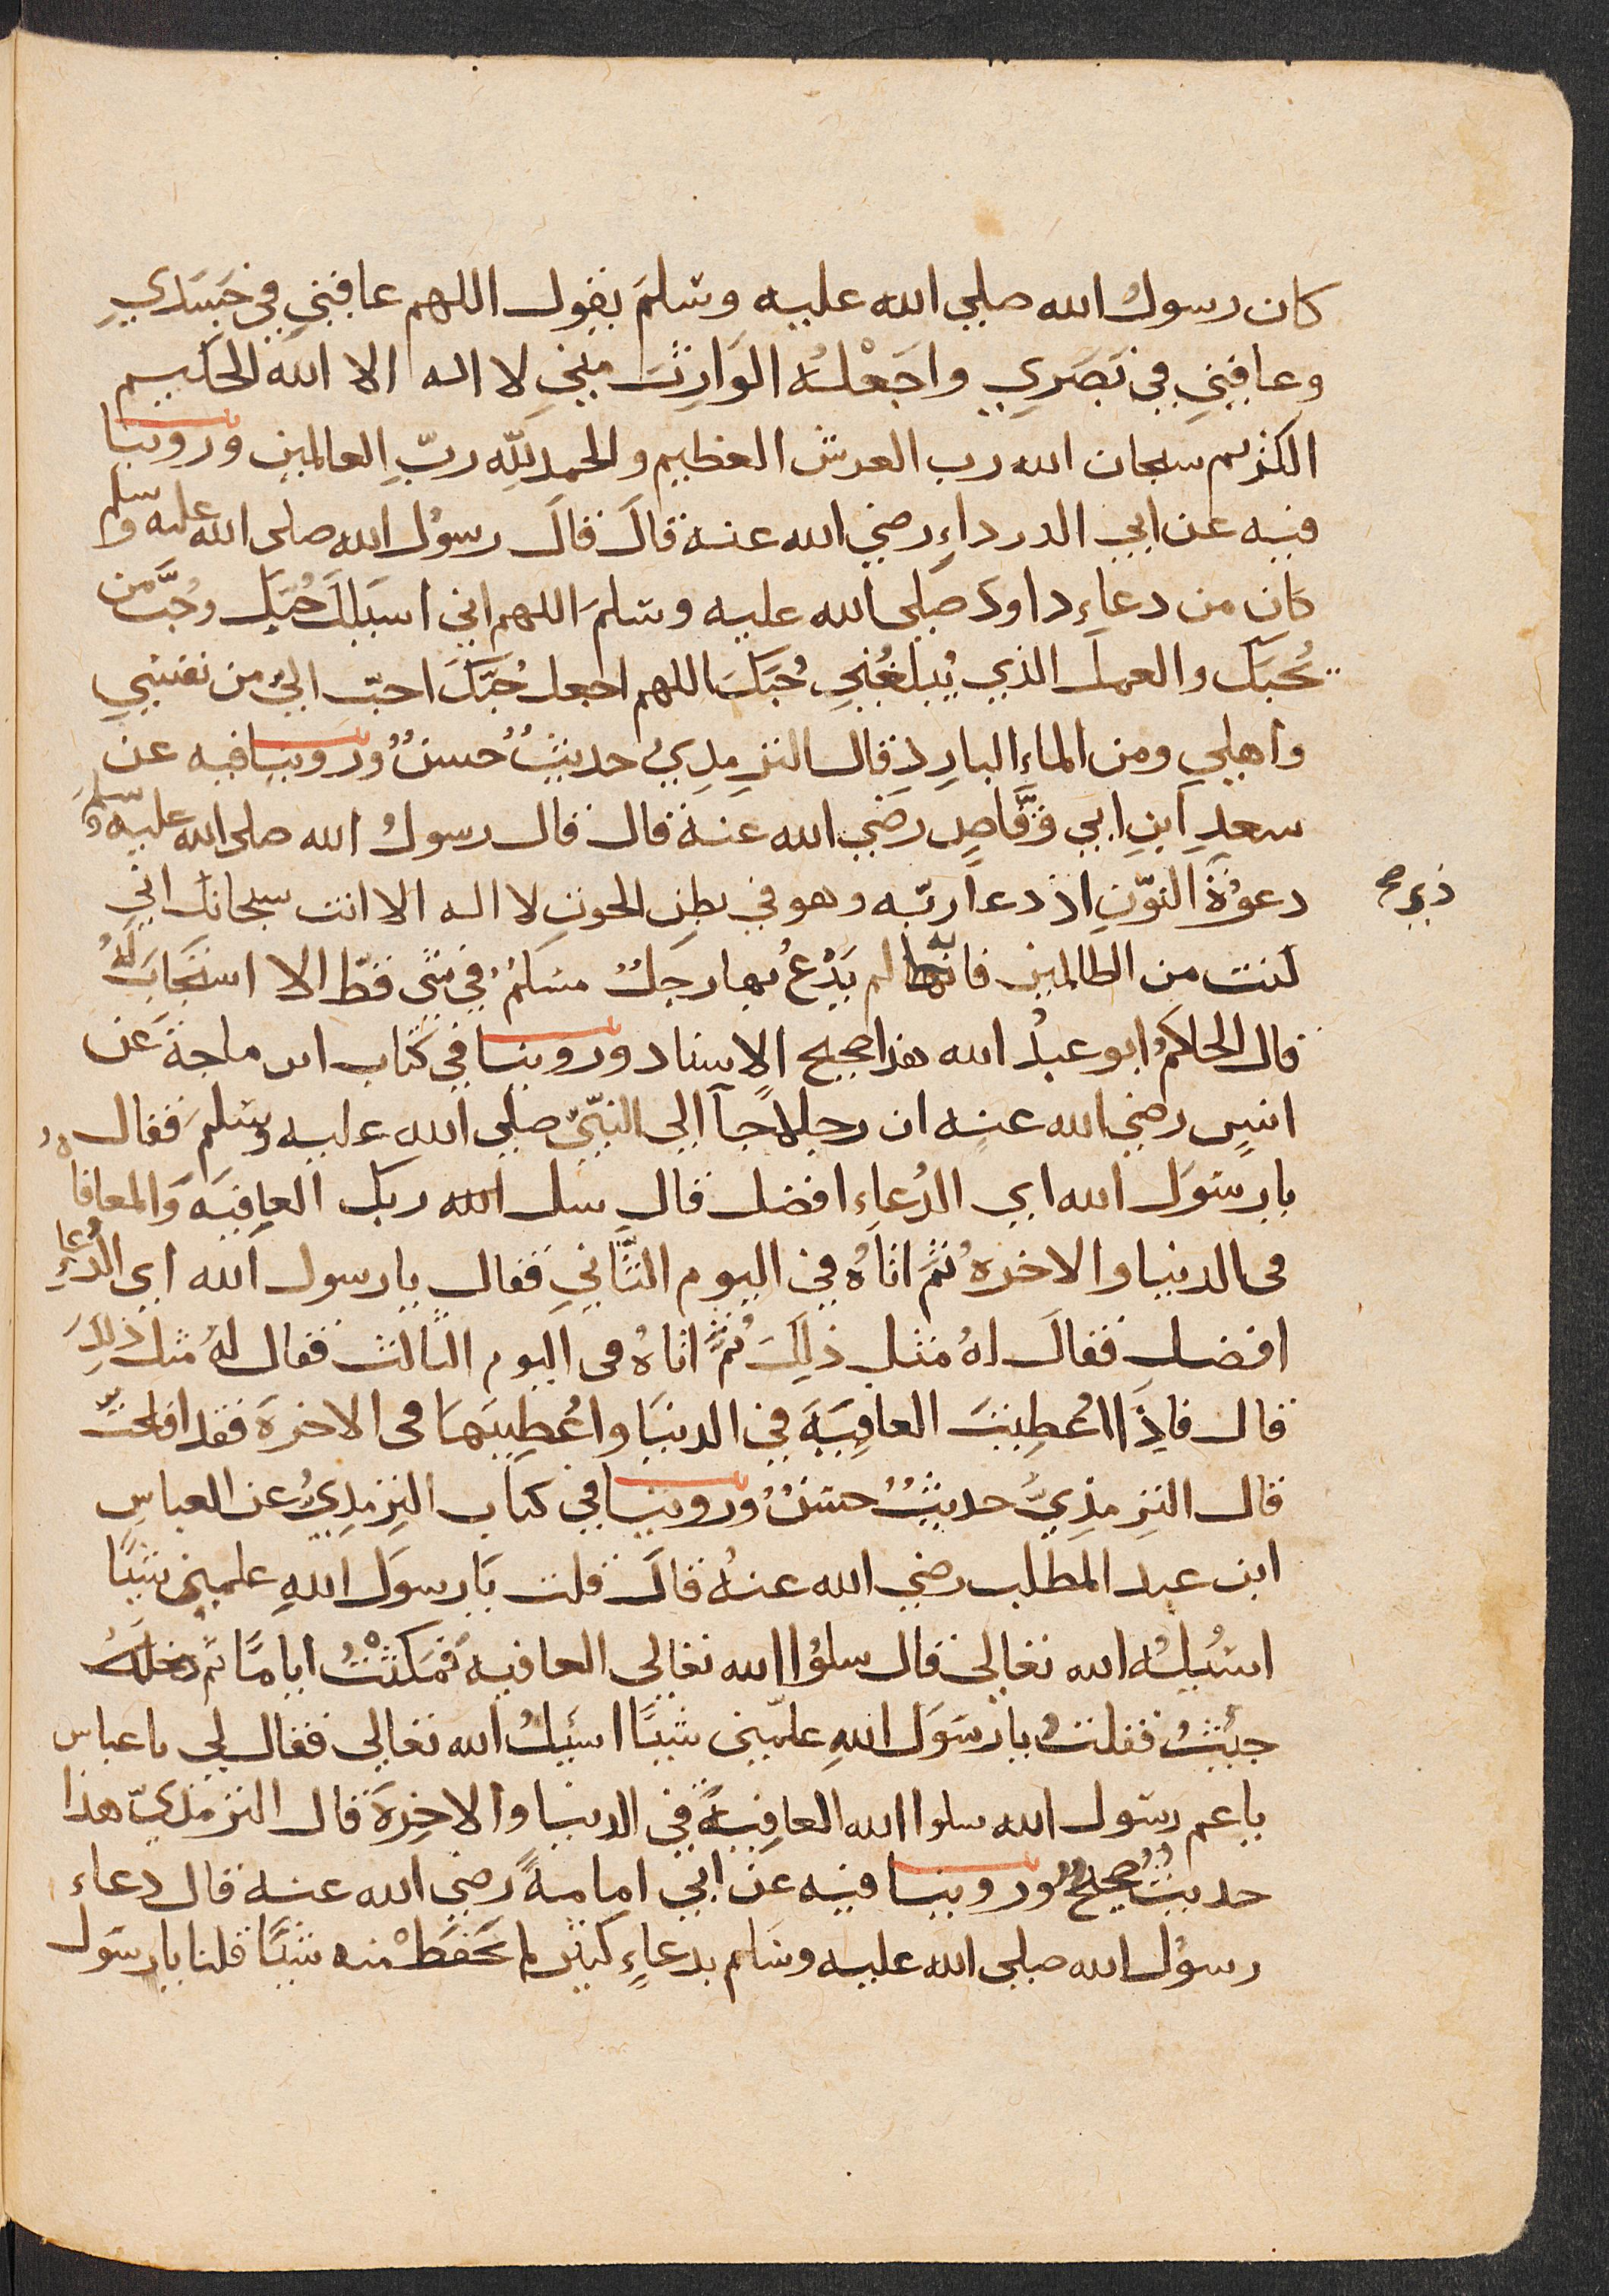 كان رسول الله صلي الله عليه وسلم يقول اللهم عافني في جسدي
وعافني في بصري واجعله الوارث مني لا اله الا الله الحليم
الكريم سبحان الله رب العرش العظيم والحمد لله رب العالمين وروينا
فيه عن ابي الدرداء رضي الله عنه قال قال رسول الله صلى الله عليه وسلم
كان من دعاء داود صلي الله عليه وسلم اللهم اني اسيلك حبك وحب من
يحبك والعمل الذي يبلغني حبك اللهم اجعل حبك احب الي من نفسي
واهلي ومن الماء البارد قال الترمذي حديث حسن وروينا فيه عن
سعد ابن ابي وقاص رضي الله عنه قال قال رسول الله صلى الله عليه وسلم
دعوة النون اذ دعا ربه وهو في بطن الحوت لا اله الا انت سبحانك اني
كنت من الظالمين فانها لم يدع بها رجل مسلم في شي قط الا استجاب له
قال الحاكم ابو عبد الله هذا صحيح الاسناد وروينا في كتاب ابن ماجة عن
انس رضي الله عنه ان رجلا جآ الي النبي صلي الله عليه وسلم فقال
يا رسول الله اي الدعاء افضل قال سل الله ربك العافية والمعافاه
في الدنيا والاخرة ثم اتاه في اليوم الثاني فقال يا رسول الله اي الدعاء
افضل فقال له مثل ذلك ثم اتاه في اليوم الثالث فقال له مثل ذلك
قال فاذا اعطيت العافية في الدنيا واعطيتها في الاخرة فقد افلحت
قال الترمذي حديث حسن وروينا في كتاب الترمذي عن العباس
ابن عبد المطلب رضي الله عنه قال قلت يا رسول الله علمني شيًا
اسيله الله تعالي قال سلوا الله تعالي العافية فمكثت اياما ثم
جيت فقلت يا رسول الله علمني شيًا اسيله الله تعالي فقال لي يا عباس
يا عم رسول الله سلوا الله العافية في الدنيا والاخرة قال الترمذي هذا
حديث صحيح وروينا فيه عن ابي امامة رضي الله عنه قال دعاء
رسول الله صلي الله عليه وسلم بدعاء كثير لم نحفظ منه شيًا قلنا يا رسول